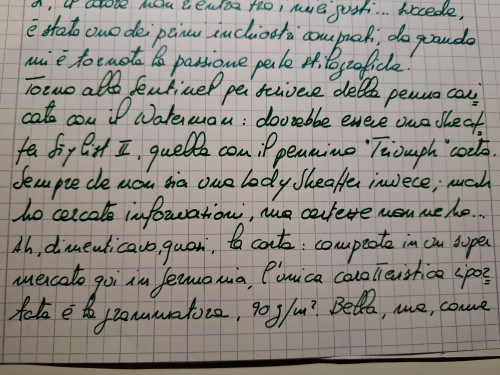 il colore non rientra tra i miei gusti... succede,
è stato uno dei primi inchiostri comprati, da quando
mi è tornata la passione per la stilografica.
Torno alla Sentinel per scrivere della penna cari-
cata con il Waterman: dovrebbe essere una Sheaf-
fer Stylist II, quella con il pennino "Triumph" corto.
Sempre che non sia una Lady Sheaffer invece,
ho cercato informazioni, ma certezze non ne ho...
Ah, dimenticavo, quasi, la carta: comprata in un super
mercato qui in Germania, l'unica caratteristica ripor-
tata è la grammatura, 90 g/m². Bella, ma, come